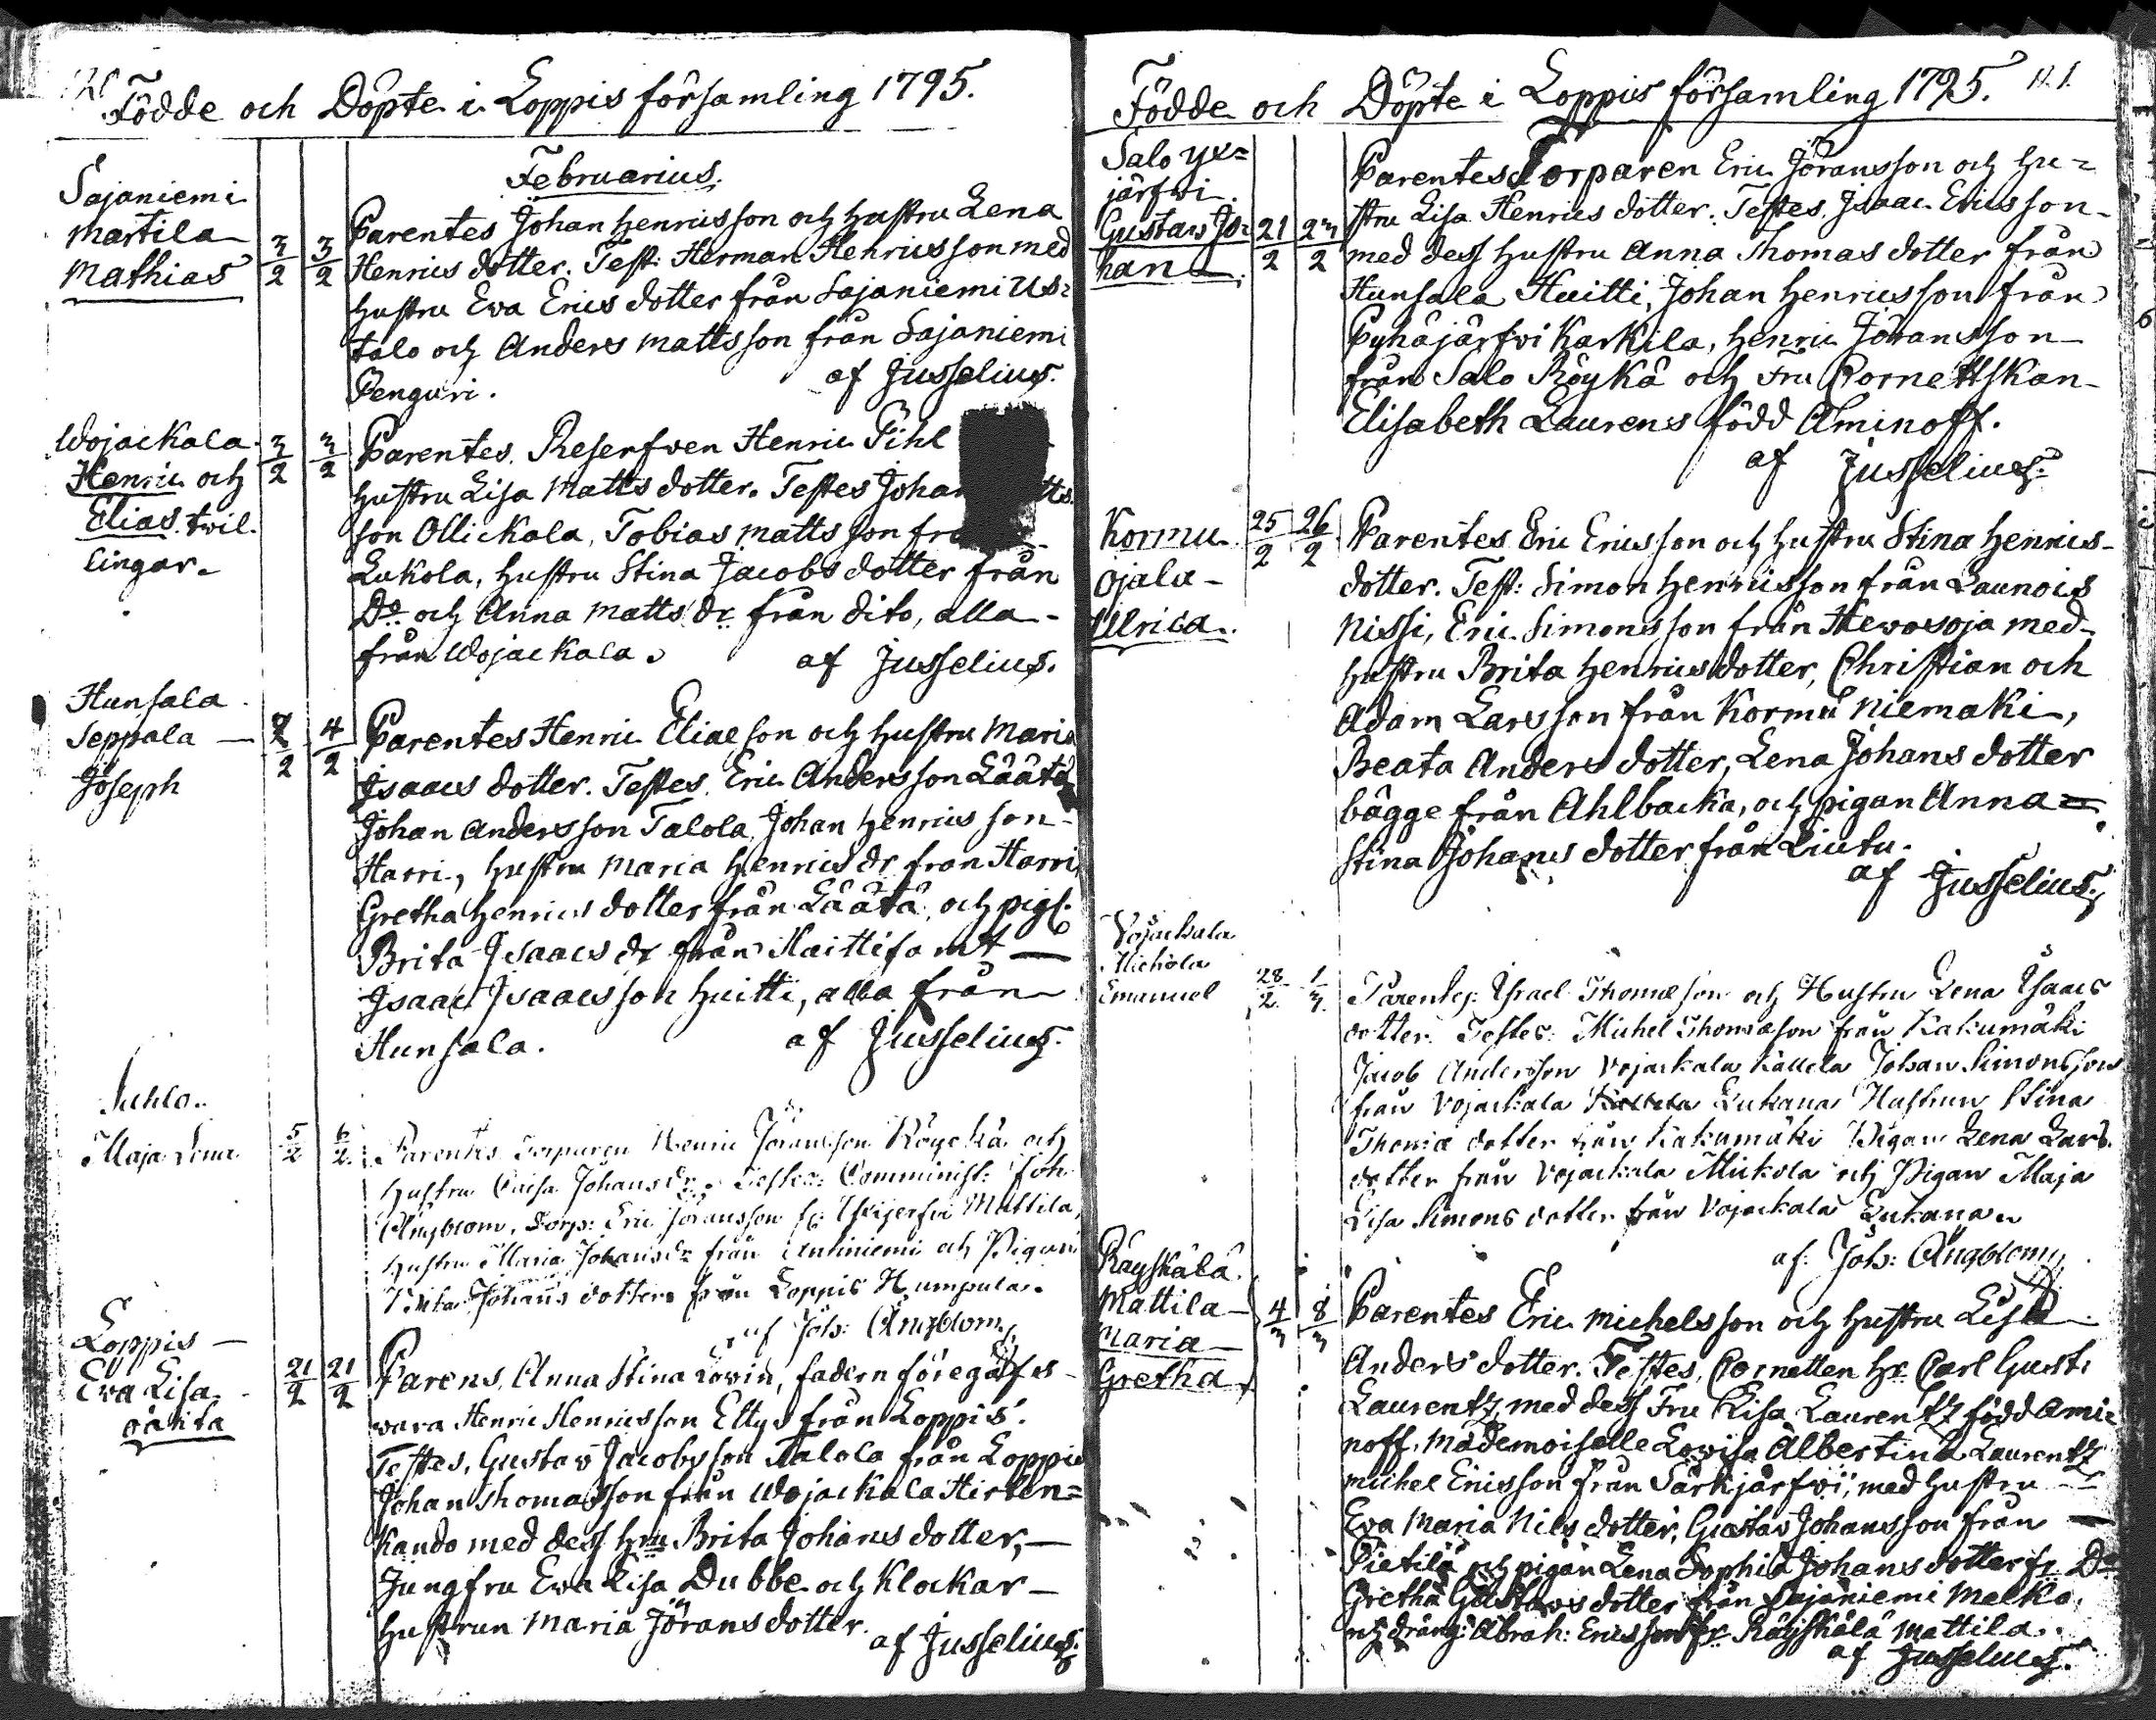 120
Födde och Döpte i Loppis församling 1795.
Februarius.
Sajaniemi
Martila
Mathias
3/2 3/2
Parentes Johan Henricsson och hustru Lena
Henrics dotter. Test: Herman Henricsson med
hustru Ewa Erics dotter från Sajaniemi Us=
talo och Anders Mattsson från Sajaniemi
Penguri. af Jusselius.
Wojackala
Henric och
Elias twil-
lingar.
3/2 3/2
Parentes. Reserfven Henric Pihl
hustru Lisa Matts dotter. Testes Johan tts
son Ollickala, Tobias Mattsson
Lukola, hustru Stina Jacobs dotter från
Do och Anna Matts dr från dito, alla
från Wojackala. af Jusselius.
Hunsala
Seppala
Joseph
2/2 4/2
Parentes Henric Eliæson och hustru Maria
Isaacs dotter. Testes. Eric Andersson Läätä
Johan Andersson Talola, Johan Henricsson
Harri, hustru Maria Henrics dr från Harri
Gretha Henrics dotter från Läätä, och pig:
Brita Isaacs dr från samt
Isaac Isaacsson Huitti, alla från
Hunsala. af Jusselius.
Maja Lena
5/2 6/2
Parentes Torparen Henric Jöransson Röyckä och
hustru Caisa Johans dr. Testes: Comminist: Joh:
Ångblom, Torp: Eric Jöransson fr: Yxijerfvi Mattila,
hustru Maria Johans dr från och Pigan
Johans dotter från Loppis Humpula.
af Joh: Ångblom,
Loppis
Eva Lisa
oäkta
21/2 21/2
Parens, Anna Stina Lovin, fadern föregäfves
vara Henric Henricsson Ellys från Loppis.
Testes, Gustav Jacobsson Talola från Loppis
Johan Thomasson från Wojackala Hirten=
kando med dess hru Brita Johans dotter,
Jungfru Ewa Lisa Dubbe och Klockar
hustrun Maria Jörans dotter.
af Jusselius.
Födde och Döpte i Loppis församling 1795. 121.
Salo yx=
järfwi
Gustav Jo=
han
21/2 23/2
Parentes Torparen Eric Jöransson och hu=
stru Lisa Henrics dotter. Testes, Isaac Ericsson
med dess hustru Anna Thomas dotter från
Hunsala Huitti, Johan Henricsson från
Pyhäjärfvi Karkila, Henric Jöransson
från Salo Röykä och Fru Cornettskan
Elisabeth Laurens född Aminoff.
af Jusselius.
Kormu
Ojala
Ulrica
25/2 26/2
Parentes Eric Ericsson och hustru Stina Henrics
dotter. Test: Simon Henricsson från Launois
Nissi, Eric Simonsson från Hewosoja med
hustru Brita Henrics dotter, Christian och
Adam Larsson från Kormu Niemaki,
Beata Anders dotter, Lena Johans dotter
bägge från Ahlbacka, och pigan Anna=
Stina Johans dotter från Liutu.
af Jusselius.
Vojackala
Michola
Emanuel
28/2 1/3
Parentes: Israel Thomæson och Hustru Lena Isaacs
dotter. Testes: Michel Thomæson från Kakumäki
Jacob Andersson Vojackala Källela Johan Simonsson
från Vojackala Källela Lukana Hustrun Stina
Thomæ dotter från Kakumäki Pigan Lena Lars
dotter från Vojackala Mickola och Pigan Maja
Lisa Simons dotter från Vojackala Lukana.
af: Joh: Ångblom,
Räyskälä
Mattila
Maria
Gretha
4/3 8/3
Parentes Eric Michelsson och hustru Lisa
Anders dotter. Testes, Cornetten Hr Carl Gust:
Laurentz, med dess Fru Lisa Laurentz född Ami=
noff, Mademoiselle Lovisa Albertina Laurentz
Michel Ericsson från Särkjärfvi, med hustru
Eva Maria Nils dotter, Gustav Johansson från
Pietilä och pigan Lena Sophia Johans dotter fr Do
Gretha Gustavs dotter från Sajaniemi Melko,
och dräng: Abrah: Ericsson fr Räyskälä Mattila.
af Jusselius.